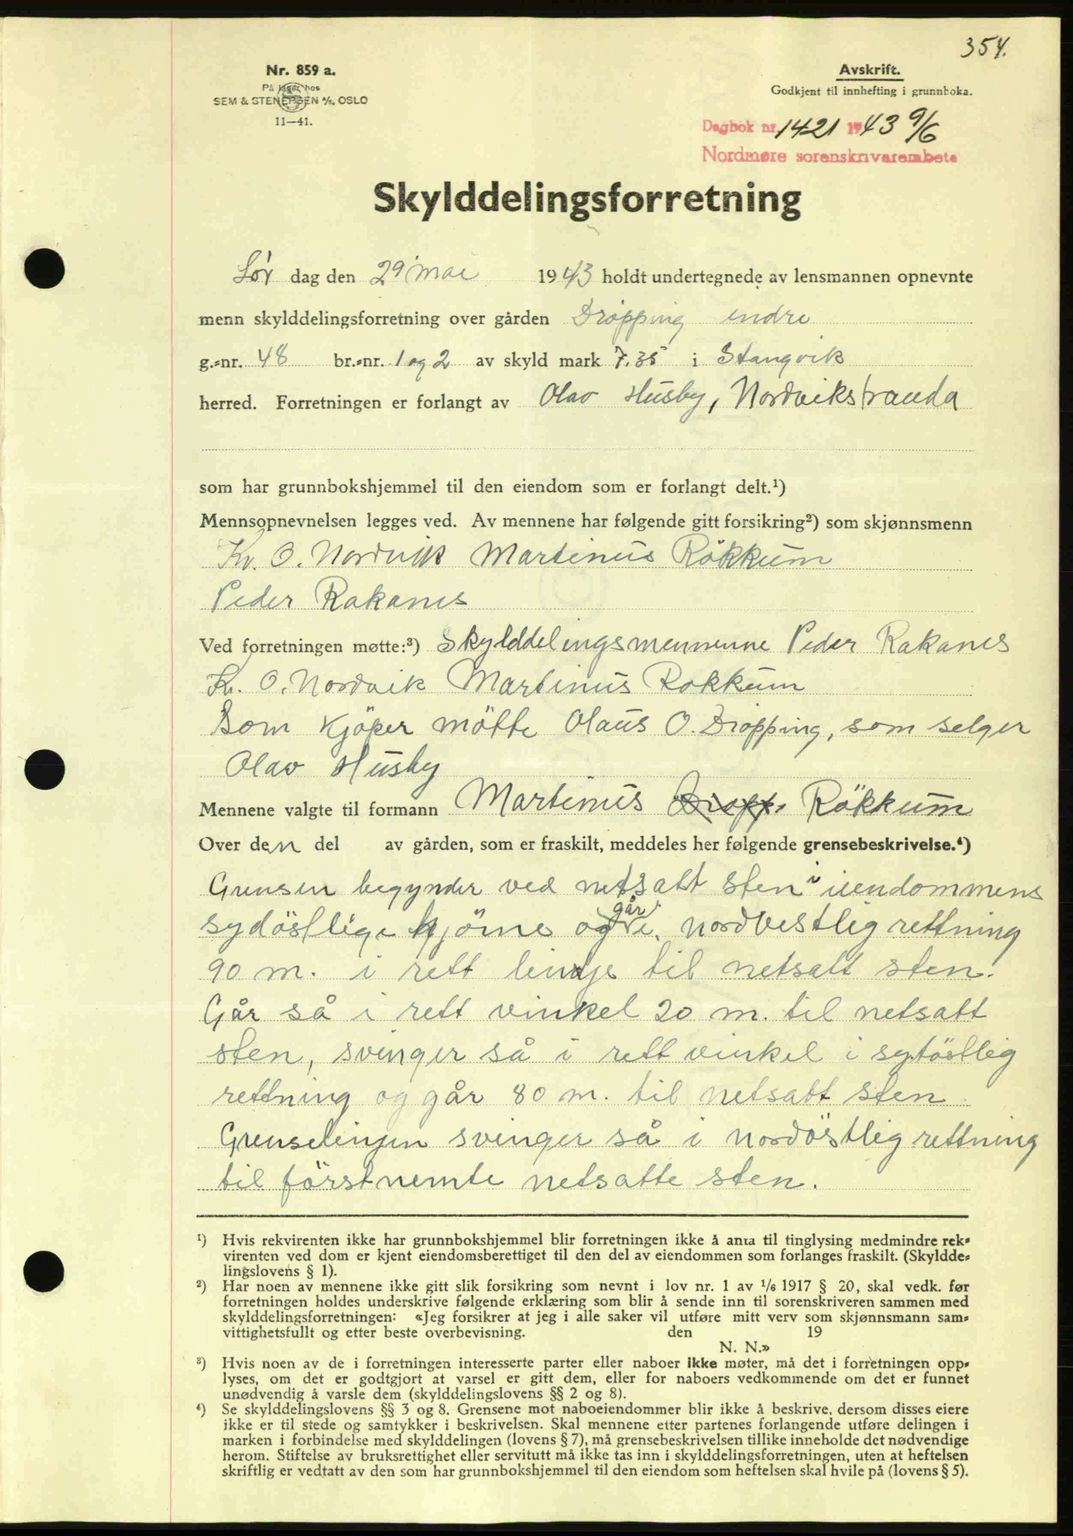 354.
Nr. 859 a.
På lager hos
SEM & STENERSEN A/S. OSLO
11—41.
Avskrift.
Godkjent til innhefting i grunnboka.
Dagbok nr. 1421 1943 9/6
Nordmøre sorenskrivarembete
Skylddelingsforretning
Lør dag den 29 mai 1943 holdt undertegnede av lensmannen opnevnte
menn skylddelingsforretning over gården Drøpping indre
g.-nr. 48 br.-nr. 1 og 2 av skyld mark 7.35 i Stangvik
herred. Forretningen er forlangt av Olav Husby, Nordvikstranda
som har grunnbokshjemmel til den eiendom som er forlangt delt.¹)
Mennsopnevnelsen legges ved. Av mennene har følgende gitt forsikring²) som skjønnsmenn
Kr. O. Nordvik Martinus Røkkum
Peder Rakanes
Ved forretningen møtte:³) Skylddelingsmennene Peder Rakanes
Kr. O. Nordvik Martinus Rokkum
Som kjöper mötte Olaus O. Drøpping, som selger
Olav Husby
Mennene valgte til formann Martinus Røkkum
Over den del av gården, som er fraskilt, meddeles her følgende grensebeskrivelse.⁴)
Grensen begynder ved netsatt sten i iendommens
sydöstlige hjörne og går i nordvestlig rettning
90 m. i rett linje til netsatt sten.
Går så i rett vinkel 20 m. til netsatt
sten, svinger så i rett vinkel i sydöstlig
rettning og går 80 m. til netsatt sten
Grenselinjen svinger så i nordöstlig rettning
til förstnemte netsatte sten.
¹) Hvis rekvirenten ikke har grunnbokshjemmel blir forretningen ikke å anta til tinglysing medmindre rek-
virenten ved dom er kjent eiendomsberettiget til den del av eiendommen som forlanges fraskilt. (Skyldde-
lingslovens § 1).
²) Har noen av mennene ikke gitt slik forsikring som nevnt i lov nr. 1 av 1/6 1917 § 20, skal vedk. før
forretningen holdes underskrive følgende erklæring som blir å sende inn til sorenskriveren sammen med
skylddelingsforretningen: «Jeg forsikrer at jeg i alle saker vil utføre mitt verv som skjønnsmann sam-
vittighetsfullt og etter beste overbevisning. den 19
N. N.»
³) Hvis noen av de i forretningen interesserte parter eller naboer ikke møter, må det i forretningen opp-
lyses, om det er godtgjort at varsel er gitt dem, eller for naboers vedkommende om det er funnet
unødvendig å varsle dem (skylddelingslovens §§ 2 og 8).
⁴) Se skylddelingslovens §§ 3 og 8. Grensene mot naboeiendommer blir ikke å beskrive, dersom disses eiere
ikke er til stede og samtykker i beskrivelsen. Skal mennene etter partenes forlangende utføre delingen i
marken i forbindelse med skylddelingen (lovens § 7), må grensebeskrivelsen tillike inneholde det nødvendige
herom. Stiftelse av bruksrettighet eller servitutt må ikke tas inn i skylddelingsforretningen, uten at heftelsen
skriftlig er vedtatt av den som har grunnbokshjemmel til den eiendom som heftelsen skal hvile på (lovens § 5).